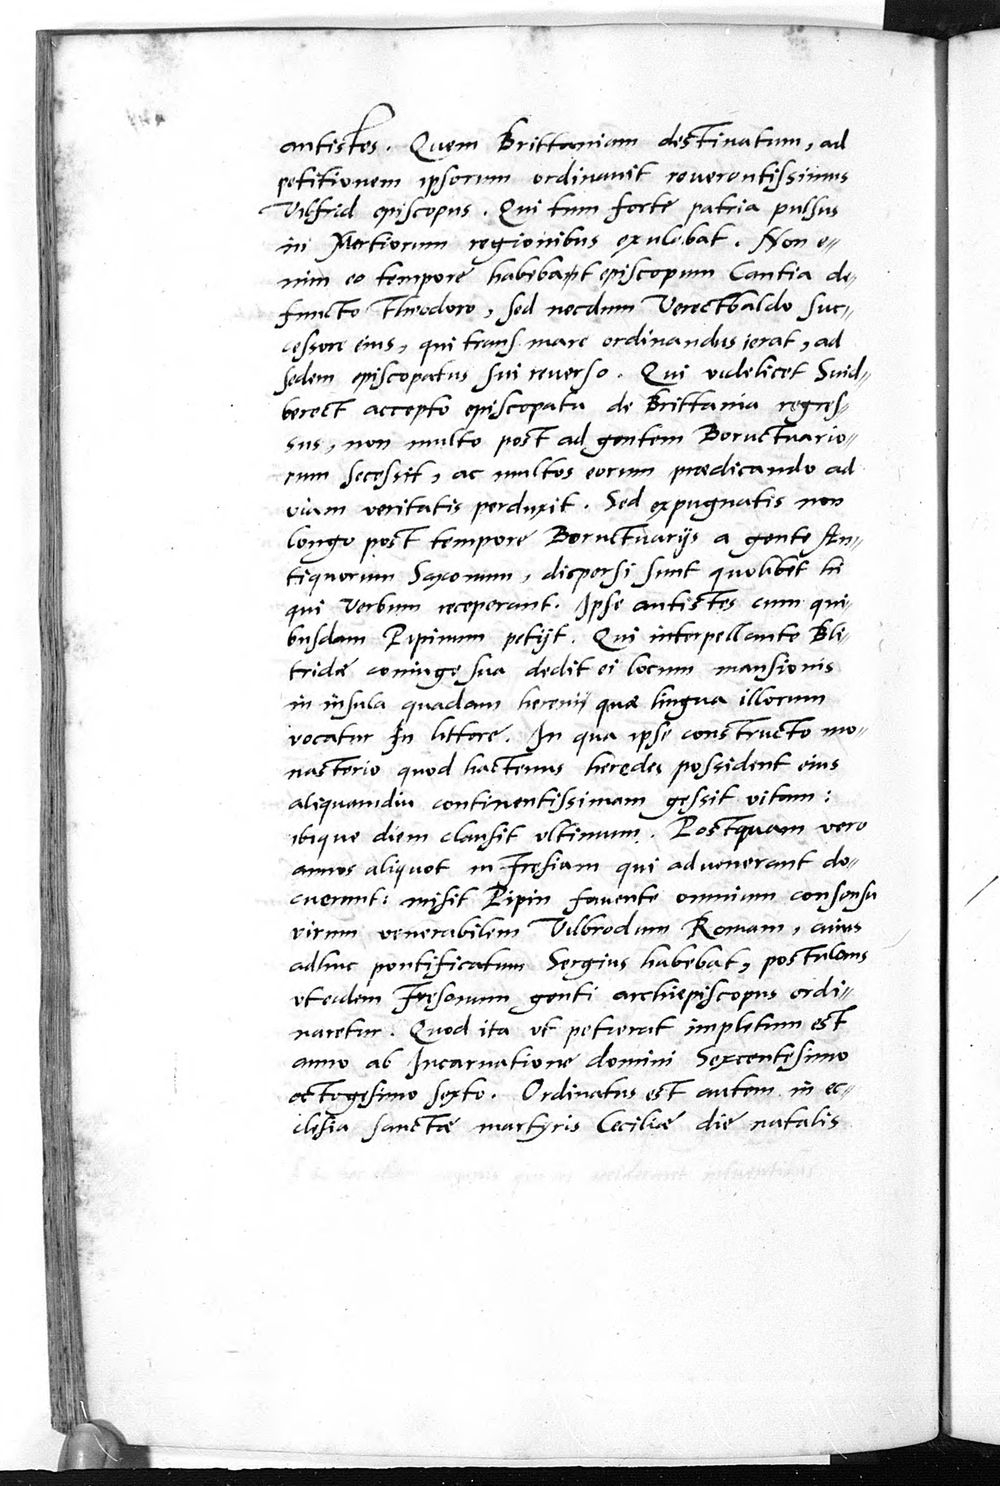 antistes. Quem Brittaniam destinatum, ad
petitionem ipsorum ordinauit reuerentissimus
Vilfrid episcopus. Qui tum forte patria pulsus
in Mertiorum regionibus exulabat. Non e=
nim eo tempore habebat episcopum Cantia de=
functo Theodoro, sed necdum Verectbaldo suc=
cessore eius, qui trans mare ordinandus ierat, ad
sedem episcopatus sui reuerso. Qui videlicet Suid=
berect accepto episcopatu de Brittania regres=
sus, non multo post ad gentem Boructuario=
rum secessit, ac multos eorum prædicando ad
viam veritatis perduxit. Sed expugnatis non
longo post tempore Boructuarijs a gente An=
tiquorum Saxonum, dispersi sunt quolibet hi
qui Verbum receperant. Ipse antistes cum qui=
busdam Pipinum petijt. Qui interpellante Bli=
tridæ coniuge sua dedit ei locum mansionis
in insula quadam hreni quæ lingua illorum
vocatur In littore. In qua ipse constructo mo=
nasterio quod hactenus heredes possident eius
aliquamdiu continentissimam gessit vitam:
ibique diem clausit vltimum. Postquam vero
annos aliquot in Fresiam qui aduenerant do=
cuerunt: misit Pipin fauente omnium consensu
virum venerabilem Vilbrodum Romam, cuius
adhuc pontificatum Sergius habebat, postulans
vt eidem Fresonum genti archiepiscopus ordi=
naretur. Quod ita vt petierat impletum est
anno ab Incarnatione domini Sexcentesimo
octogesimo sexto. Ordinatus est autem in ec=
clesia sanctæ martyris Ceciliæ die natalis